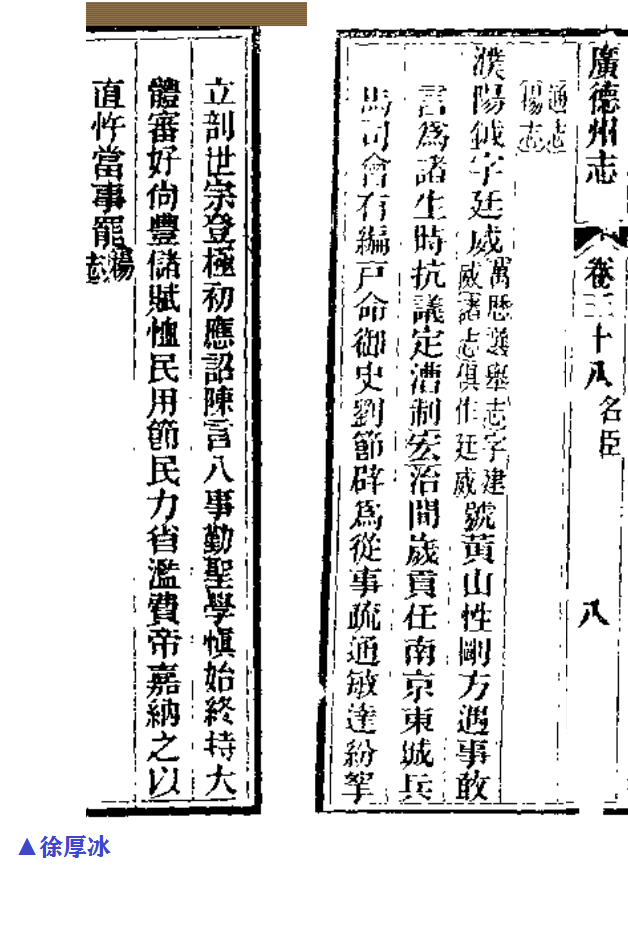 廣德州志 卷三十八 名臣 八
通志
楊志
濮陽鉞字廷威萬歷選舉志字建威諸志俱作廷威號黃山性剛方遇事敢
言爲諸生時抗議定漕制宏治間歲貢任南京東城兵
馬司會有編戸命御史劉節辟爲從事疏通敏達紛挐
立剖世宗登極初應詔陳言八事勤聖學愼始終持大
體審好尙豐儲賦恤民用節民力省濫費帝嘉納之以
直忤當事罷楊志
▲徐厚冰